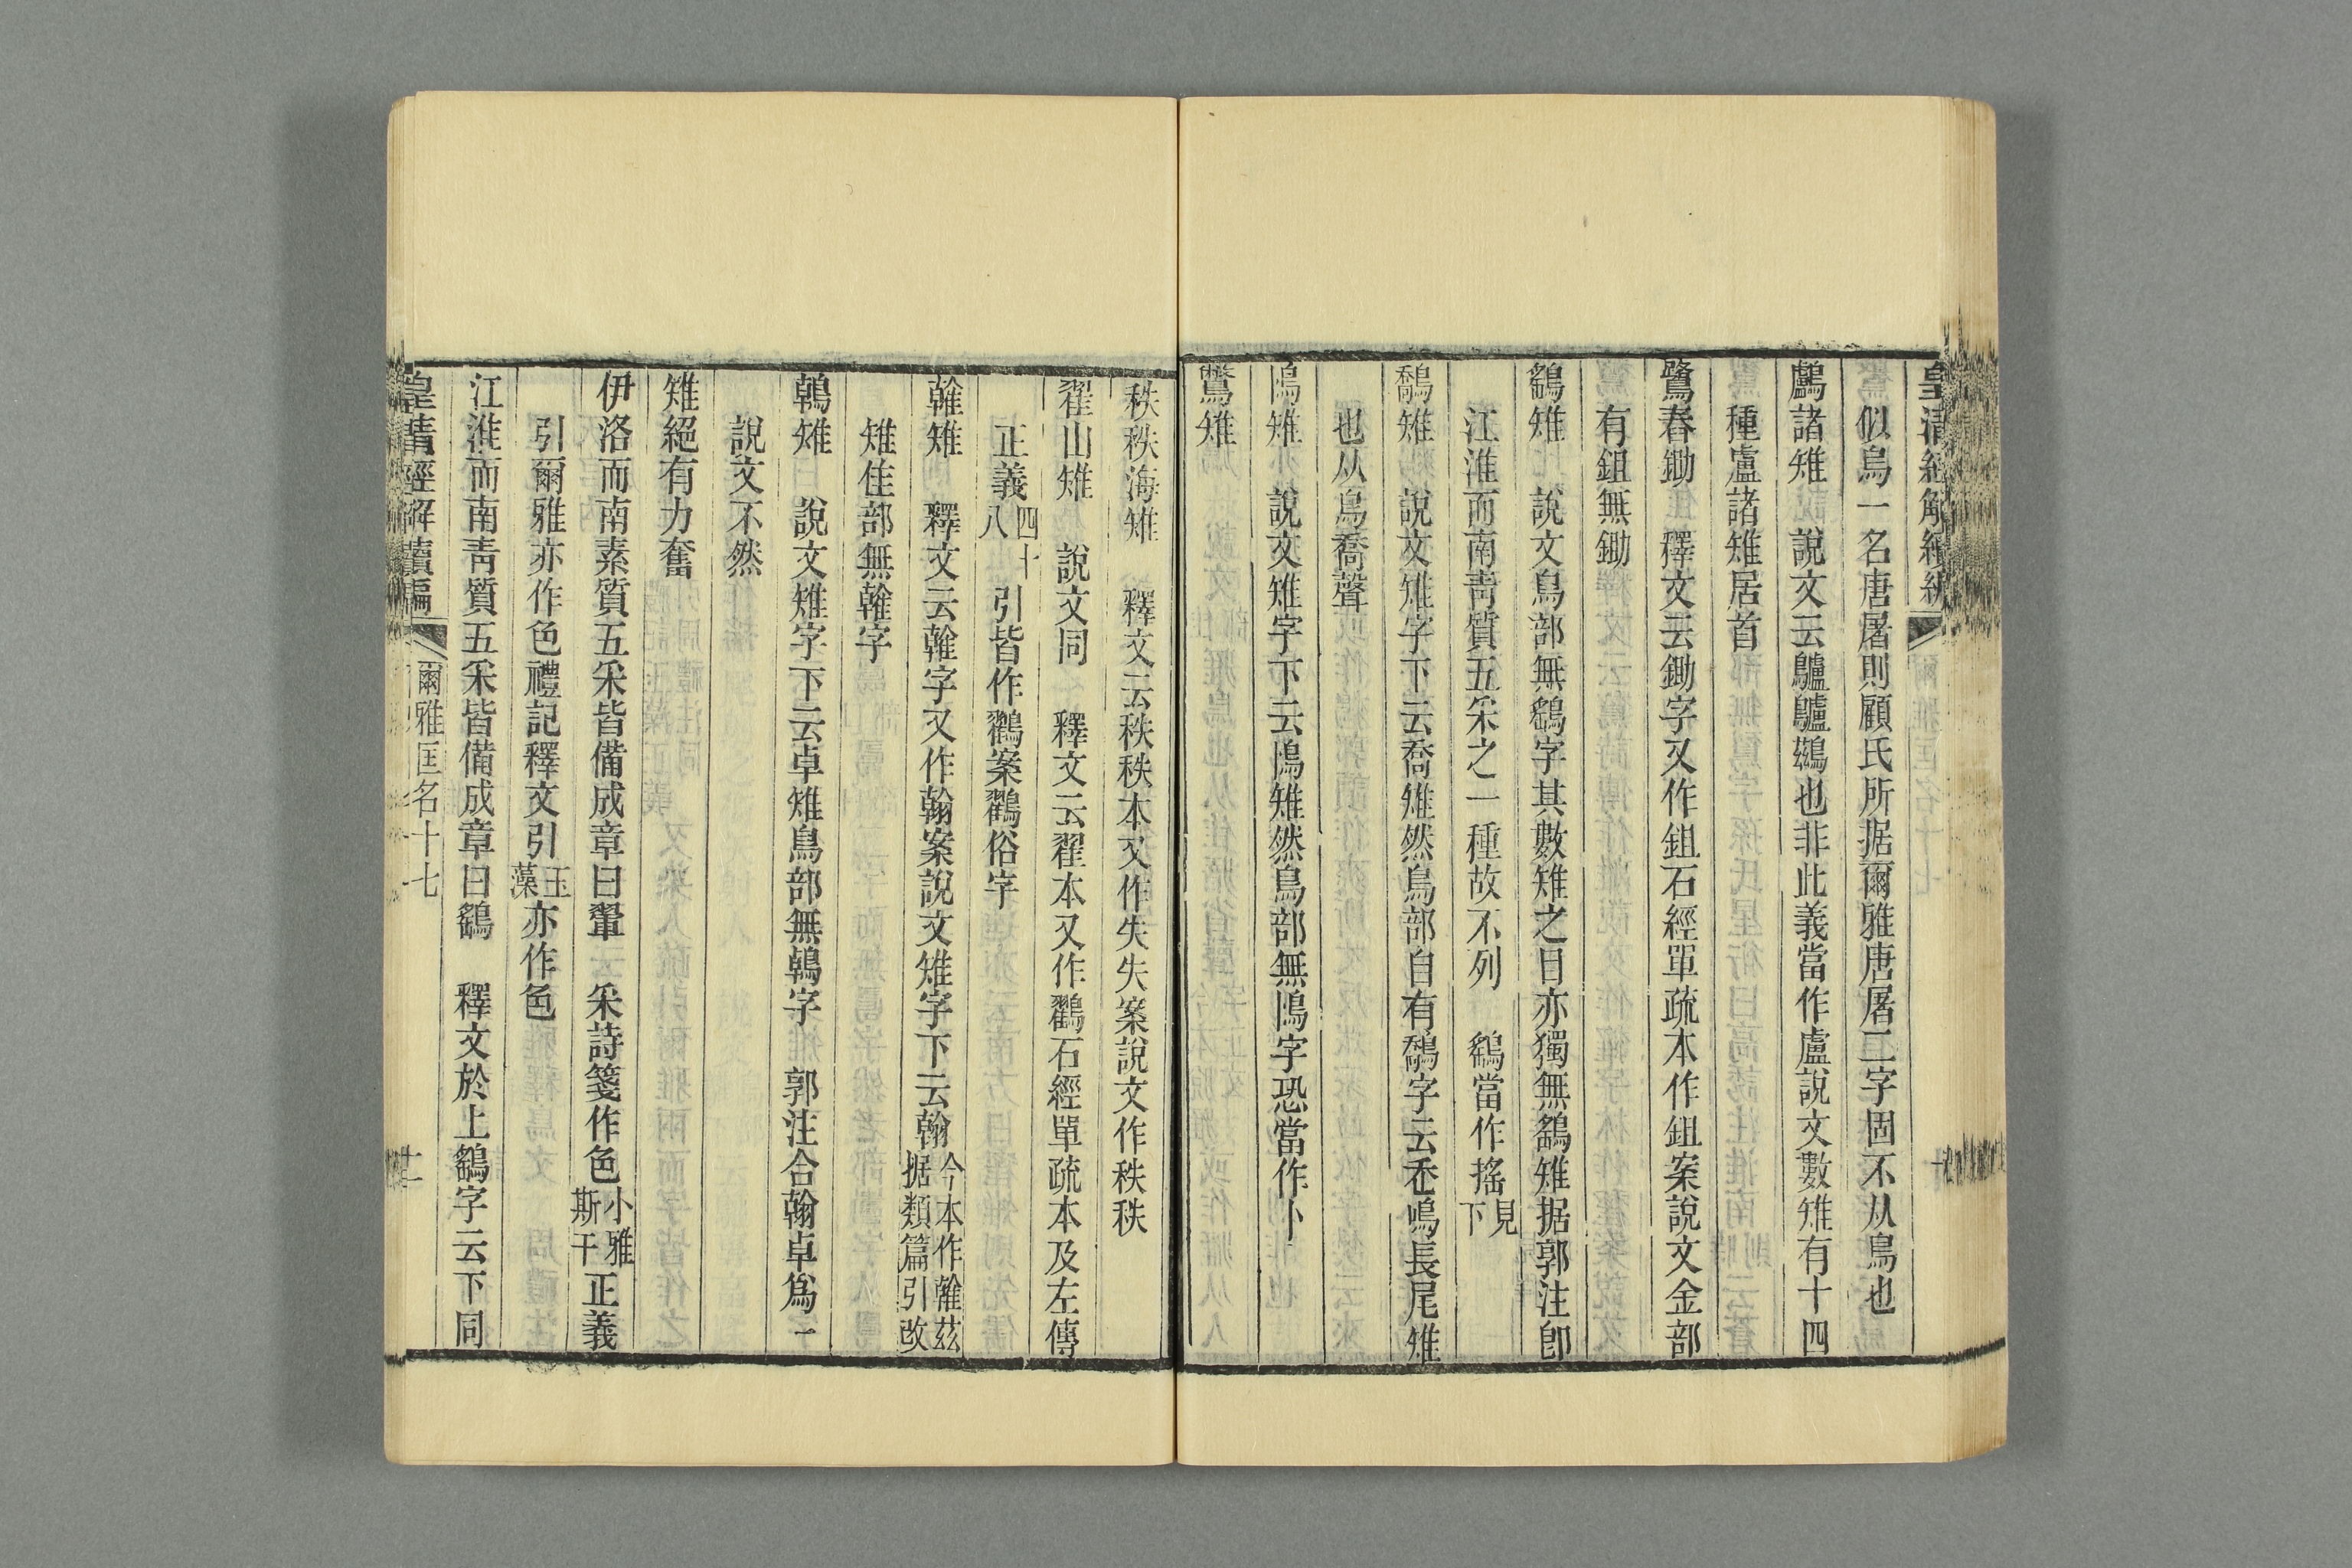 皇清經解續編
似鳥一名唐屠則顧氏所据爾雅唐屠二字固不从鳥也
鸕諸雉　說文云鸕鸕鷀也非此義當作盧說文數雉有十四
種盧諸雉居首
鷺春鋤　釋文云鋤字又作鉏石經單疏本作鉏案說文金部
有鉏無鋤
鷂雉　說文鳥部無鷂字其數雉之目亦獨無鷂雉据郭注卽
江淮而南靑質五采之一種故不列　鷂當作搖見下
鷮雉　說文雉字下云喬雉然鳥部自有鷮字云走鳴長尾雉
也从鳥喬聲
鳪雉　說文雉字下云鳪雉然鳥部無鳪字恐當作卜
鷩雉
秩秩海雉　釋文云秩秩本又作失失案說文作秩秩
翟山雉　說文同　釋文云翟本又作鸐石經單疏本及左傳
正義四十八引皆作鸐案鸐俗字
雗雉　釋文云雗字又作翰案說文雉字下云翰今本作雗茲据類篇引改
雉隹部無雗字
鵫雉　說文雉字下云卓雉鳥部無鵫字　郭注合翰卓爲一
說文不然
雉絕有力奮
伊洛而南素質五采皆備成章曰翬　采詩箋作色小雅斯干正義
引爾雅亦作色禮記釋文引玉藻亦作色
江淮而南靑質五采皆備成章曰鷂　釋文於上鷂字云下同
皇淸經解續編　爾雅匡名十七